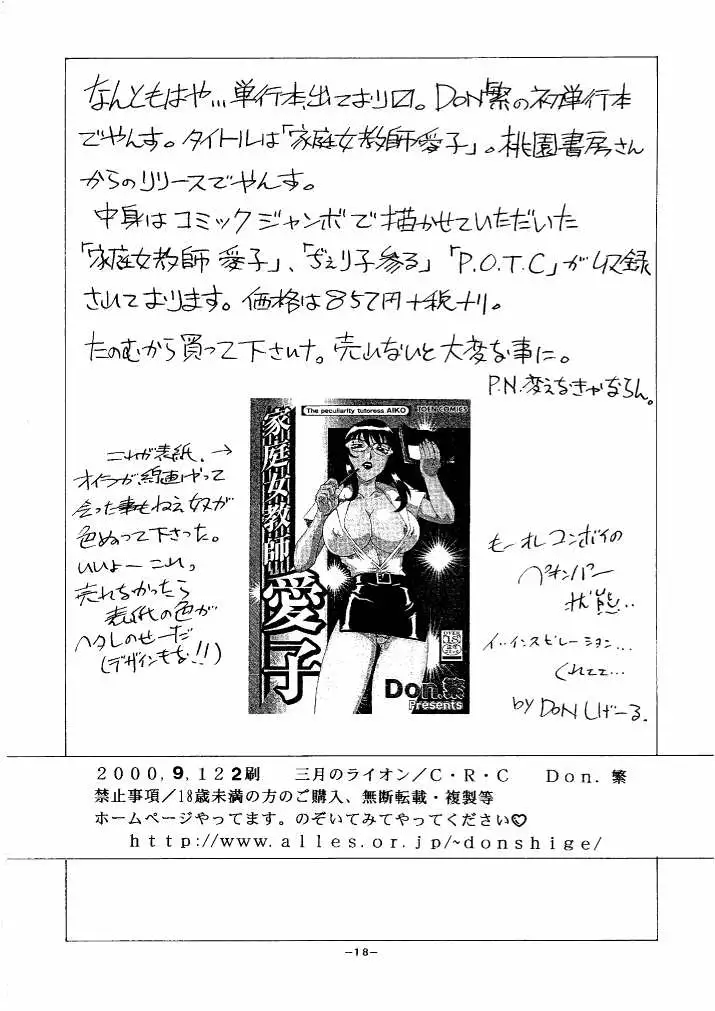 なんともはや...単行本出ております。DON繁の初単行本
でやんす。タイトルは「家庭女教師愛子」。桃園書房さん
からのリリースでやんす。
中身はコミックジャンボで描かせていただいた
「家庭女教師 愛子」、「ぢぇり子参る」「P.O.T.C」が収録
されております。価格は857円+税ナリ。
たのむから買って下さいナ。売れないと大変な事に。
P.N.変えなきゃならん。
The peculiarity tutoress AIKO
TOEN COMICS
家庭女教師
愛子
Don.繁
Presents
これが表紙、→
オイラが線画やって
会った事もねえ奴が
色ぬって下さった。
いいよーこれっ
売れなかったら
表紙の色が
ヘタレのせーだ
(デザインもな!!)
もーれコンボイの
ペキンパー
状態..
イ..インスピレーション...
くれてて...
by DON しげーる.
2000,9,12 2刷 三月のライオン/C・R・C Don. 繁
禁止事項/18歳未満の方のご購入、無断転載・複製等
ホームページやってます。のぞいてみてやってください♡
http://www.alles.or.jp/~donshige/
-18-